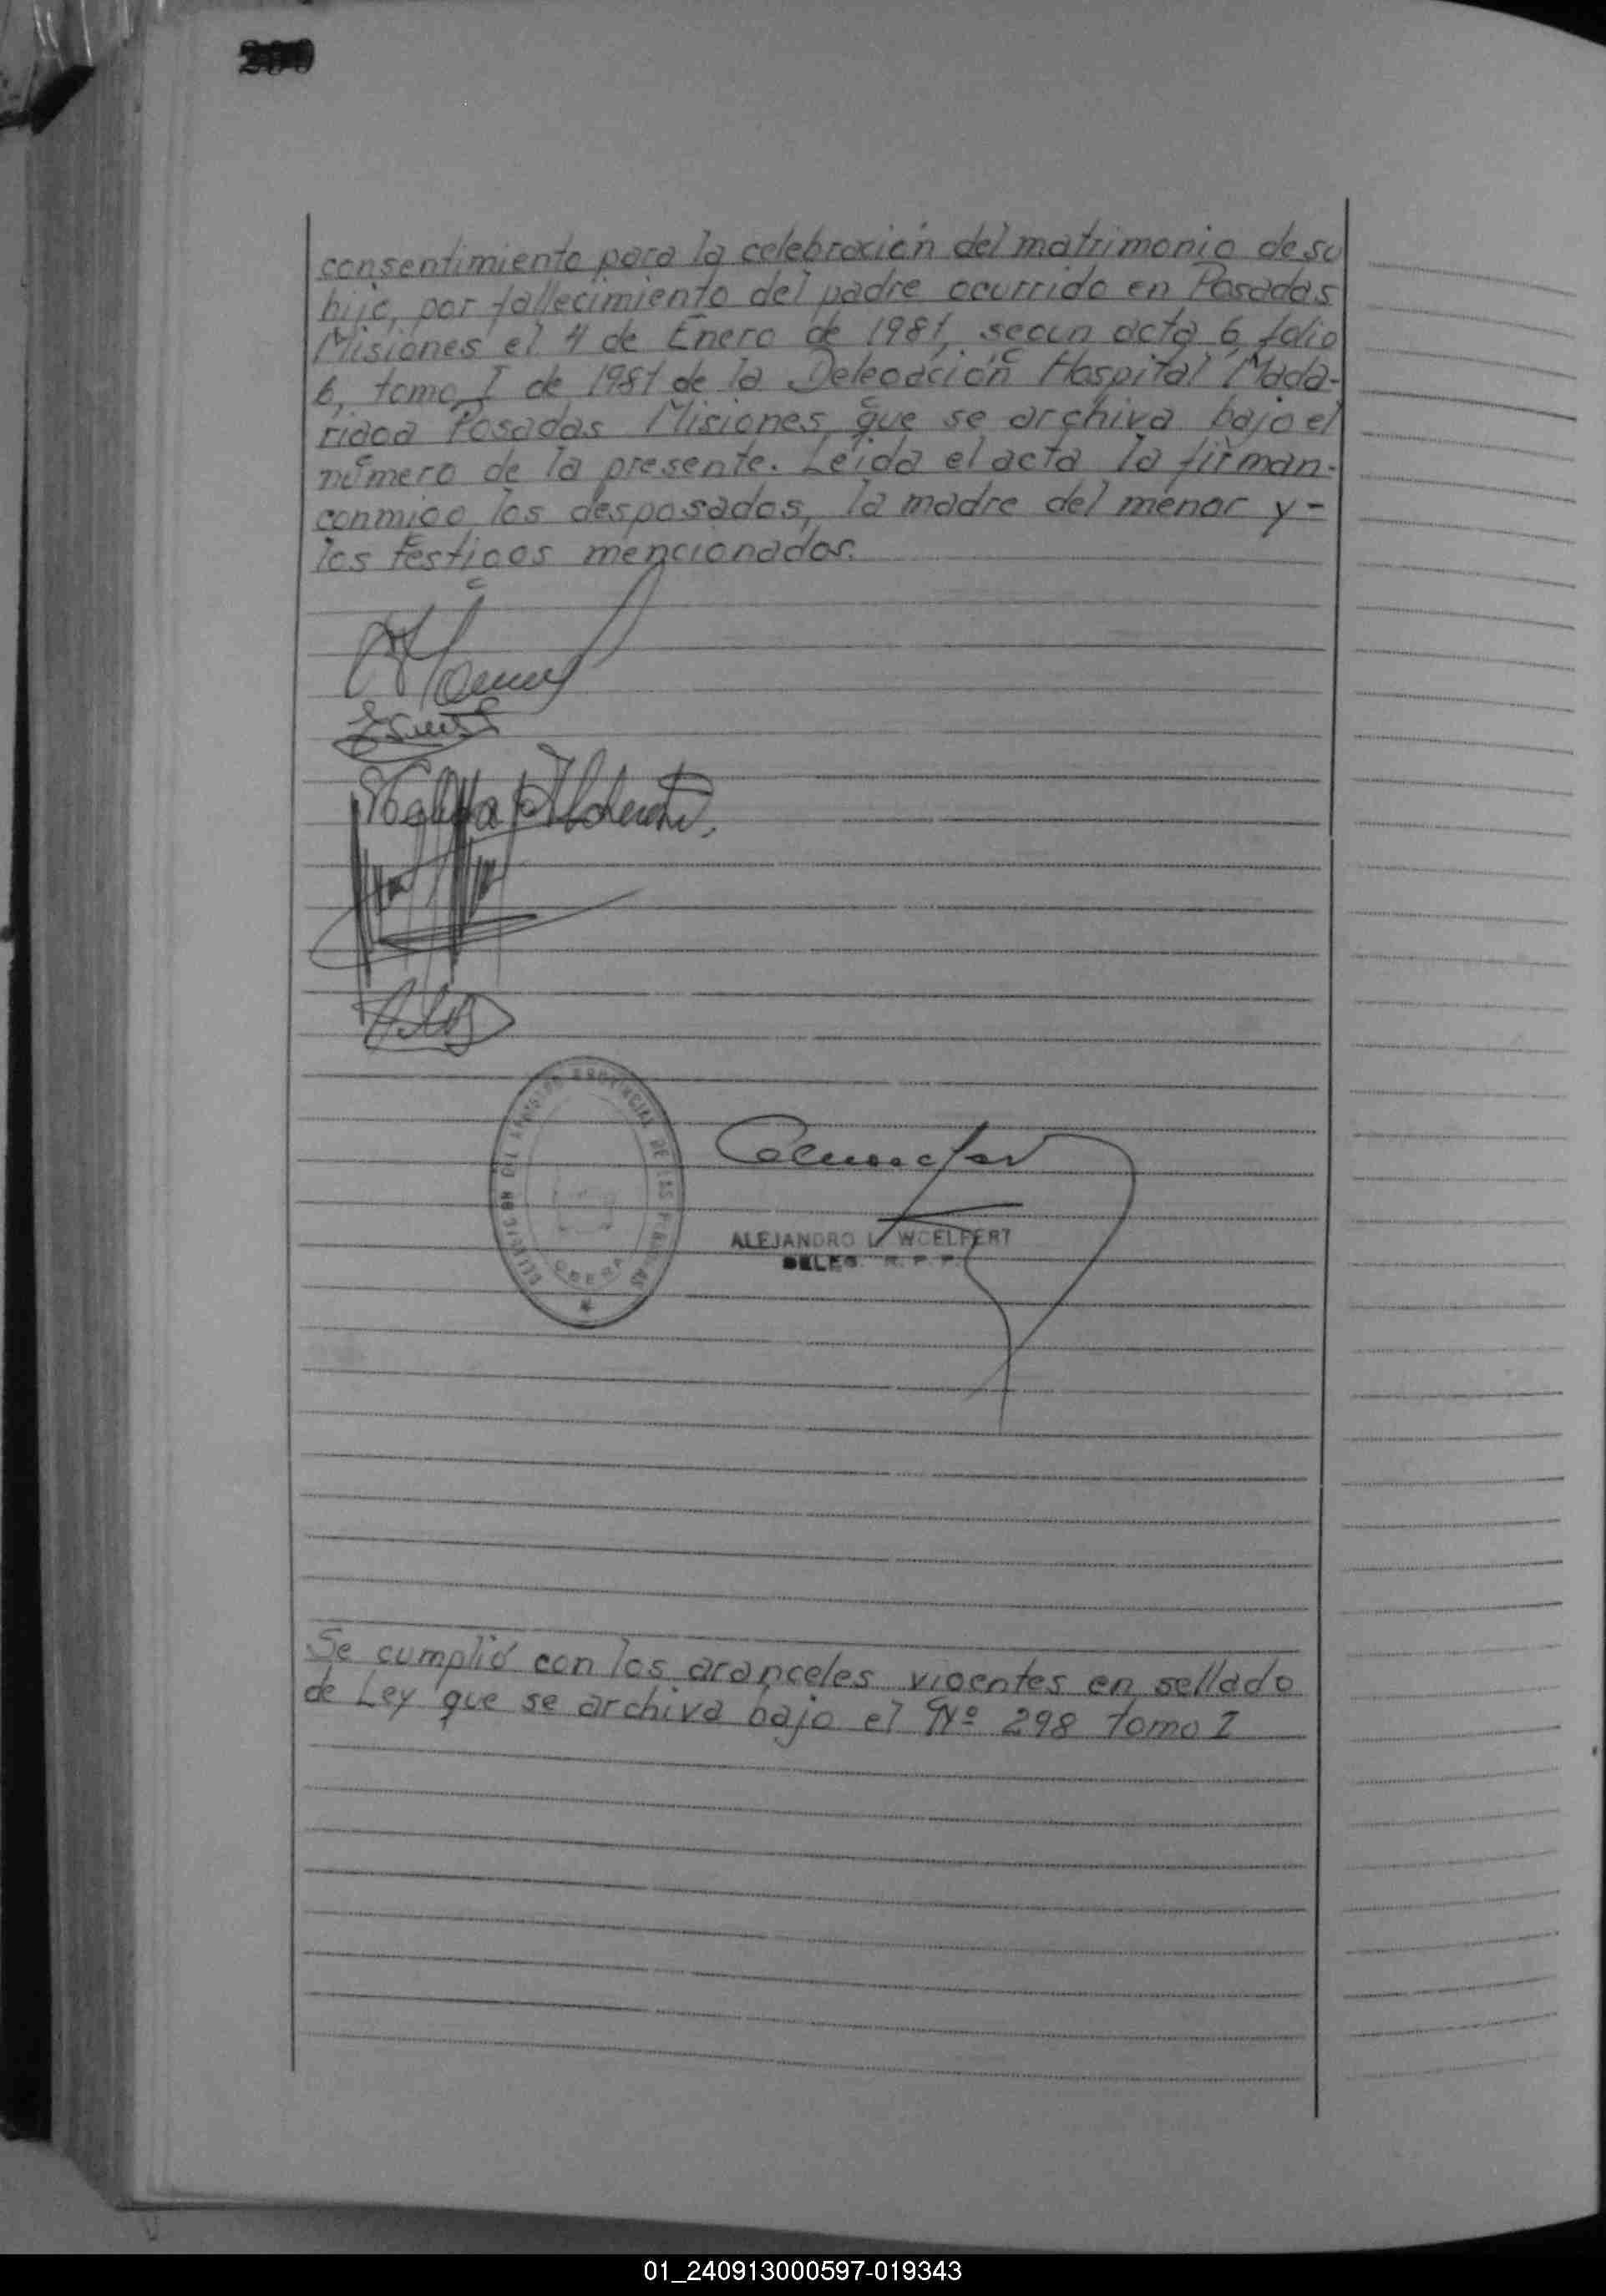 consentimiento para la celebración del matrimonio de su
hijo, por fallecimiento del padre ocurrido en Posadas
Misiones el 4 de Enero de 1981, según acta 6, folio
6, tomo I de 1981 de la Delegación Hospital Mada-
riaga Posadas Misiones que se archiva bajo el
número de la presente. Leída el acta la firman-
conmigo los desposados, la madre del menor y-
los testigos mencionados.
DELEGACION DEL REGISTRO PROVINCIAL DE LAS PERSONAS
OBERA
ALEJANDRO L. WOELFERT
DELEG. R. P. P.
Se cumplió con los aranceles vigentes en sellado
de Ley que se archiva bajo el Nº 298 tomo I
01_240913000597-019343